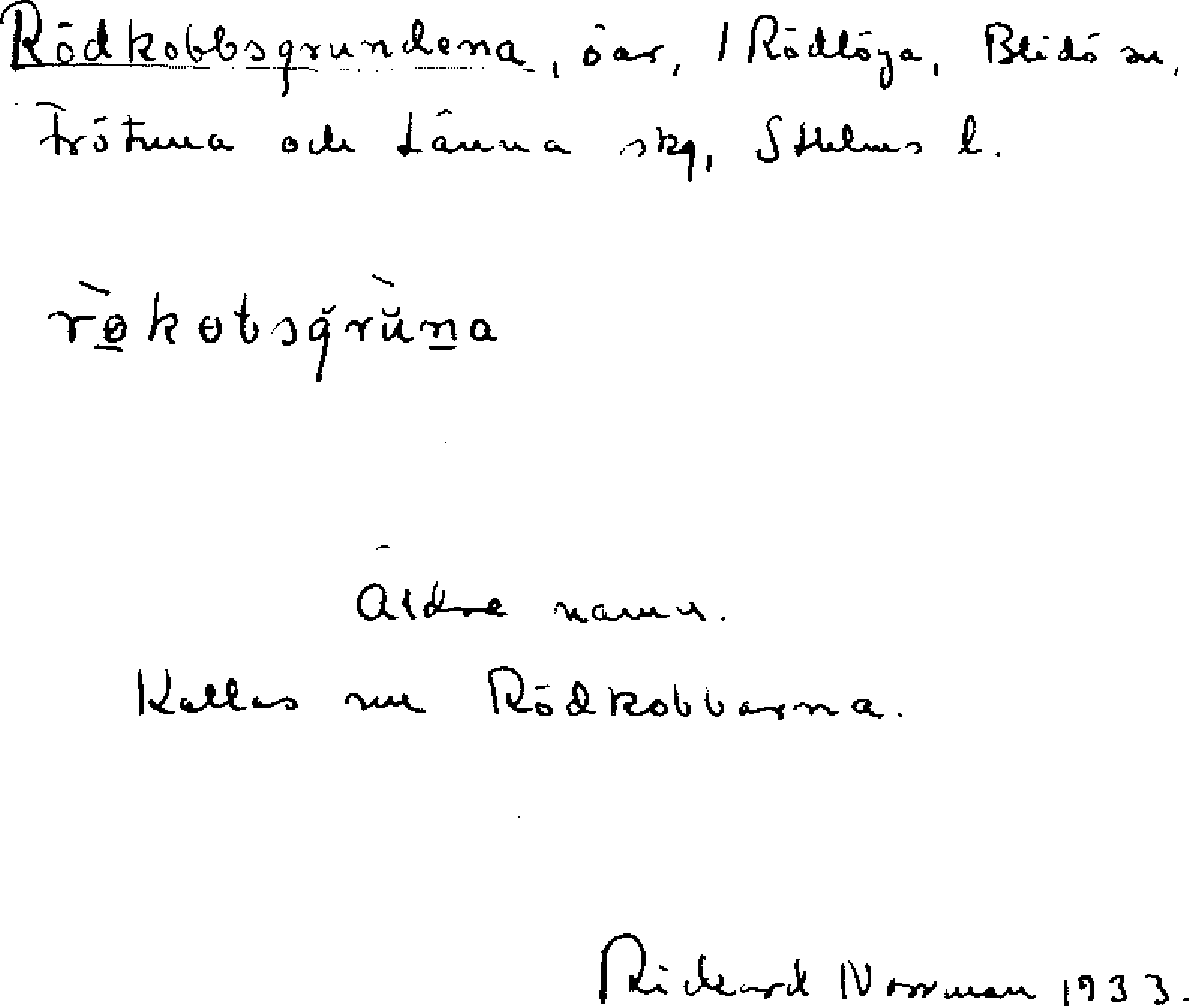 Rödkobbsgrundena, öar, / Rödlöga, Blidö sn,
Frötuna och Länna skg, Sthlms l.
rø̀kobsgrŭ̀na
Äldre namn.
Kallas nu Rödkobbarna.
Rickard Norrman 1933.